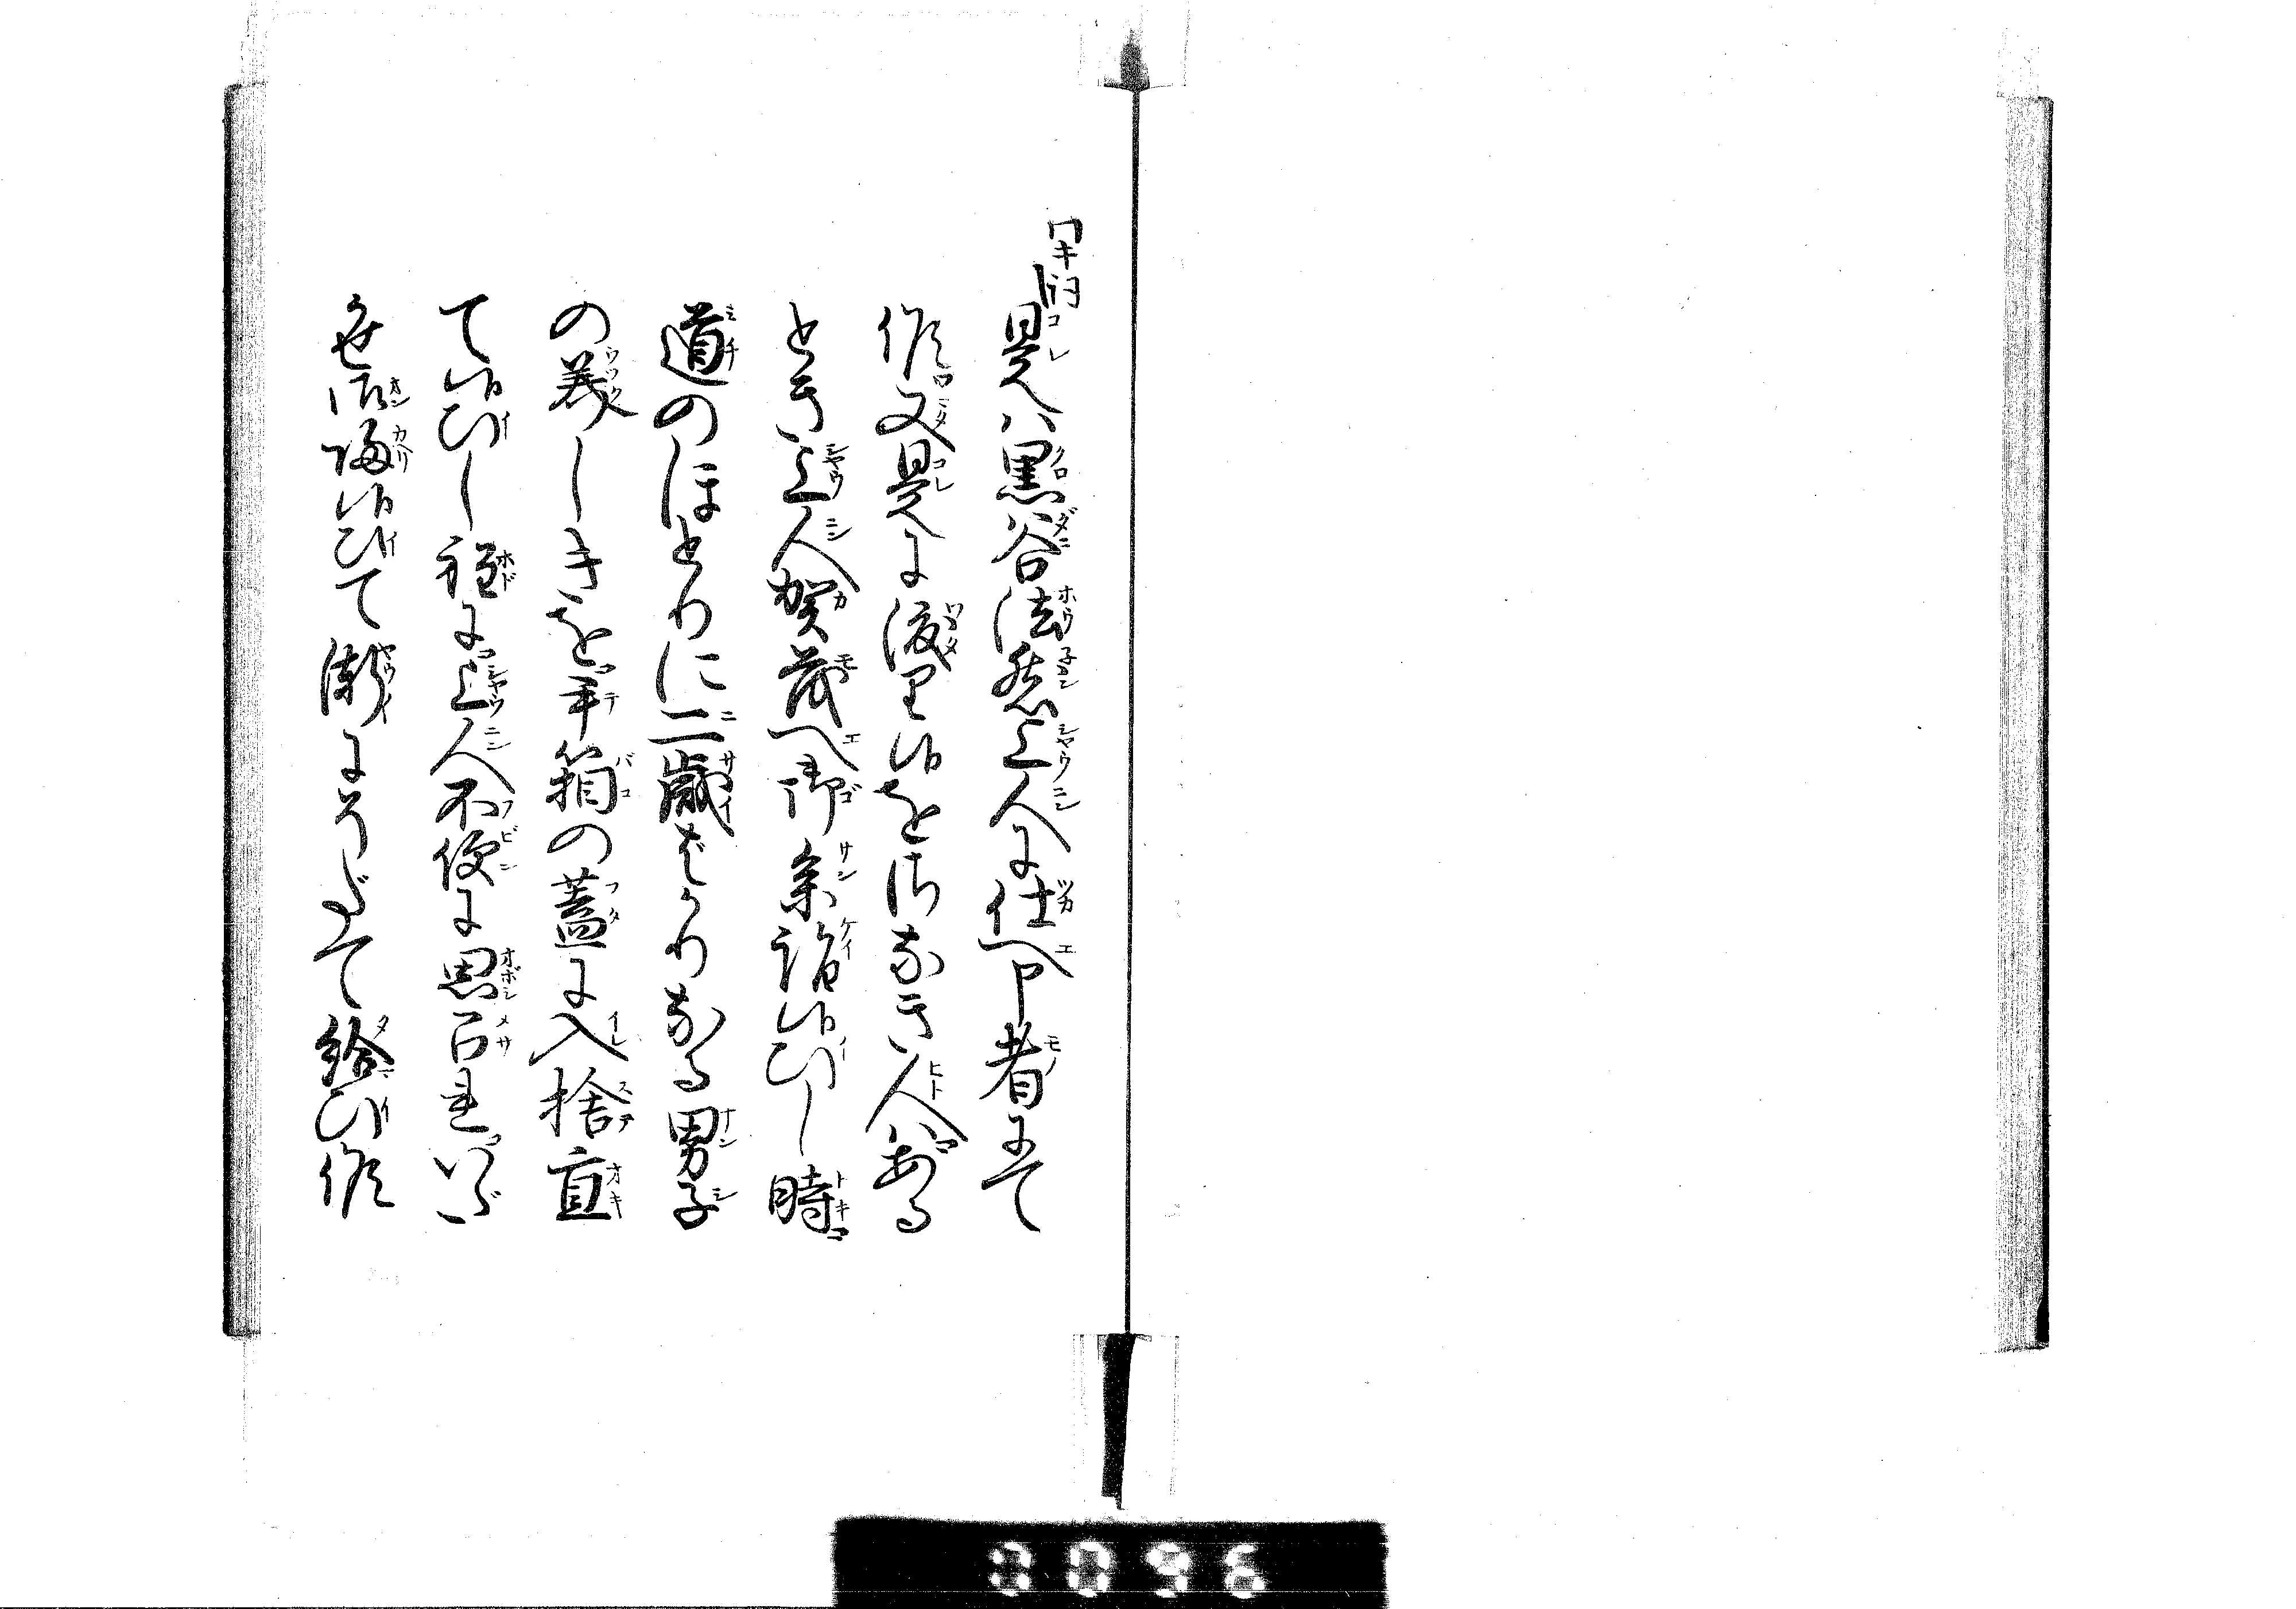 ワキ詞
是ハ黒谷法然上人に仕へ申者にて
候又是に渡り候をさなき人ハある
とき上人賀茂へ御参詣候ひし時
道のほとりに二歳ばかりなる男子
の美しきを手箱の蓋に入捨置
て候ひし程に上人不便に思召れいだ
かせ御帰候ひて漸にそだて給ひ候
8096